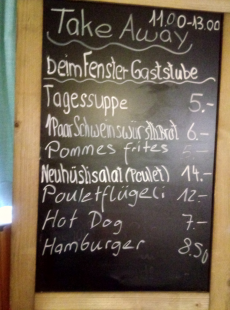 Take Away 11.00-13.00
beim Fenster Gaststube
Tagessuppe 5.-
1 Paar Schweinswürstli+Brot 6.-
Pommes frites 5.-
Neuhüslisalat (Poulet) 14.-
Pouletflügeli 12.-
Hot Dog 7.-
Hamburger 8.50